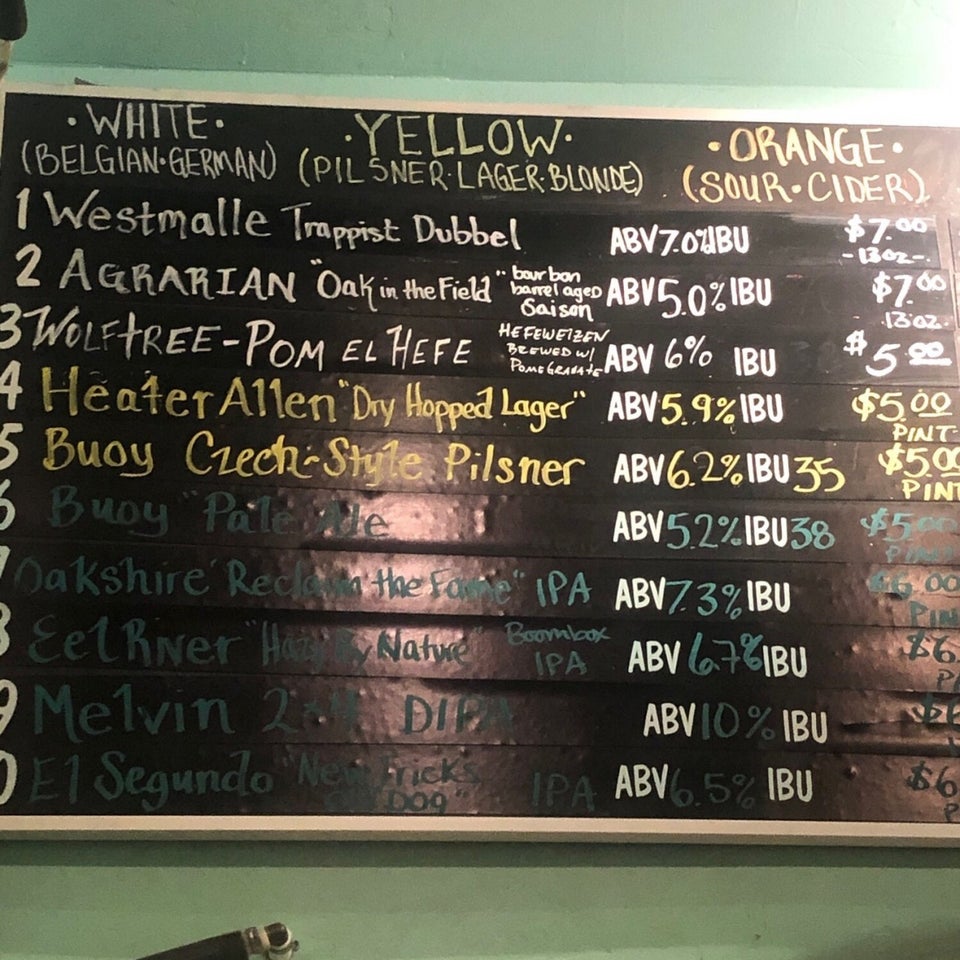 ·WHITE· ·YELLOW· ·ORANGE·
(BELGIAN·GERMAN) (PILSNER·LAGER·BLONDE) (SOUR·CIDER)
1 Westmalle Trappist Dubbel ABV 7.0% IBU $7.00
-13oz-
2 AGRARIAN "Oak in the Field" bourbon barrel aged Saison ABV 5.0% IBU $7.00
13oz
3 WOLFTREE-POM EL HEFE HEFEWEIZEN BREWED W/ POMEGRANATE ABV 6% IBU $5.00
4 Heater Allen "Dry Hopped Lager" ABV 5.9% IBU $5.00
PINT
5 Buoy Czech-Style Pilsner ABV 6.2% IBU 35 $5.00
PINT
6 Buoy "Pale Ale ABV 5.2% IBU 38 $5.00
PINT
Oakshire "Reclaim the Fame" IPA ABV 7.3% IBU $6.00
PIN
8 Eel River "Hazy By Nature" Boombox IPA ABV 6.7% IBU $6
9 Melvin 2x4 DIPA ABV 10% IBU $6
0 El Segundo "New Tricks Old DOG" IPA ABV 6.5% IBU $6